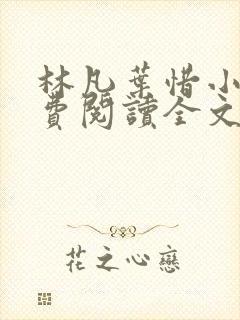 林凡葉惜小
費閱讀全文
花之心戀